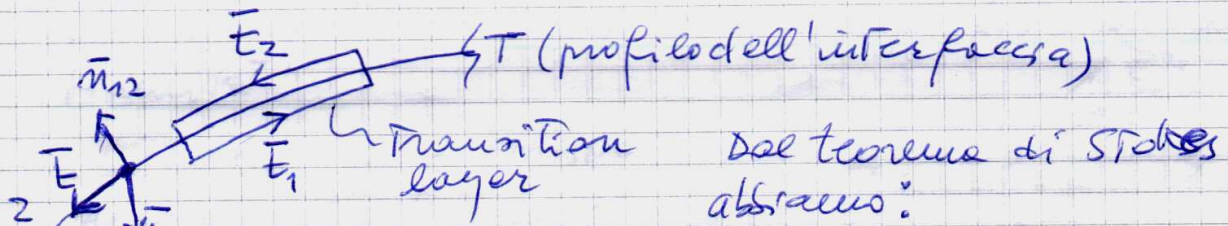 t̄₂ T (profilo dell'interfaccia)
n̄₁₂
t̄₁ Transition Dal teorema di Stokes
t̄ layer abbiamo:
2